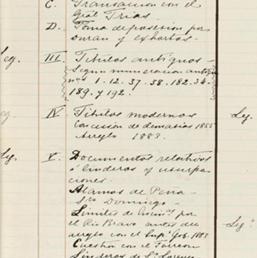 C. Transacion con el
Gral Trias
D. Toma de posesion por
Duran y exhortos.
cg. III Titulos antiguos
Segun numeracion antigua
nos 1-12-37-38-182-34-
189. y 192.
IV Titulos modernos Leg.
Concesion de demasias 1855
Arreglo 1883.
Leg. V. Documentos relativos
á linderos y usurpa-
ciones
Alamos de Peña
Sto Domingo
Limites de por
el Rio Bravo antes del
arreglo con el Leg
Cuestion con el Torreon
Linderos de Sn Lorenzo